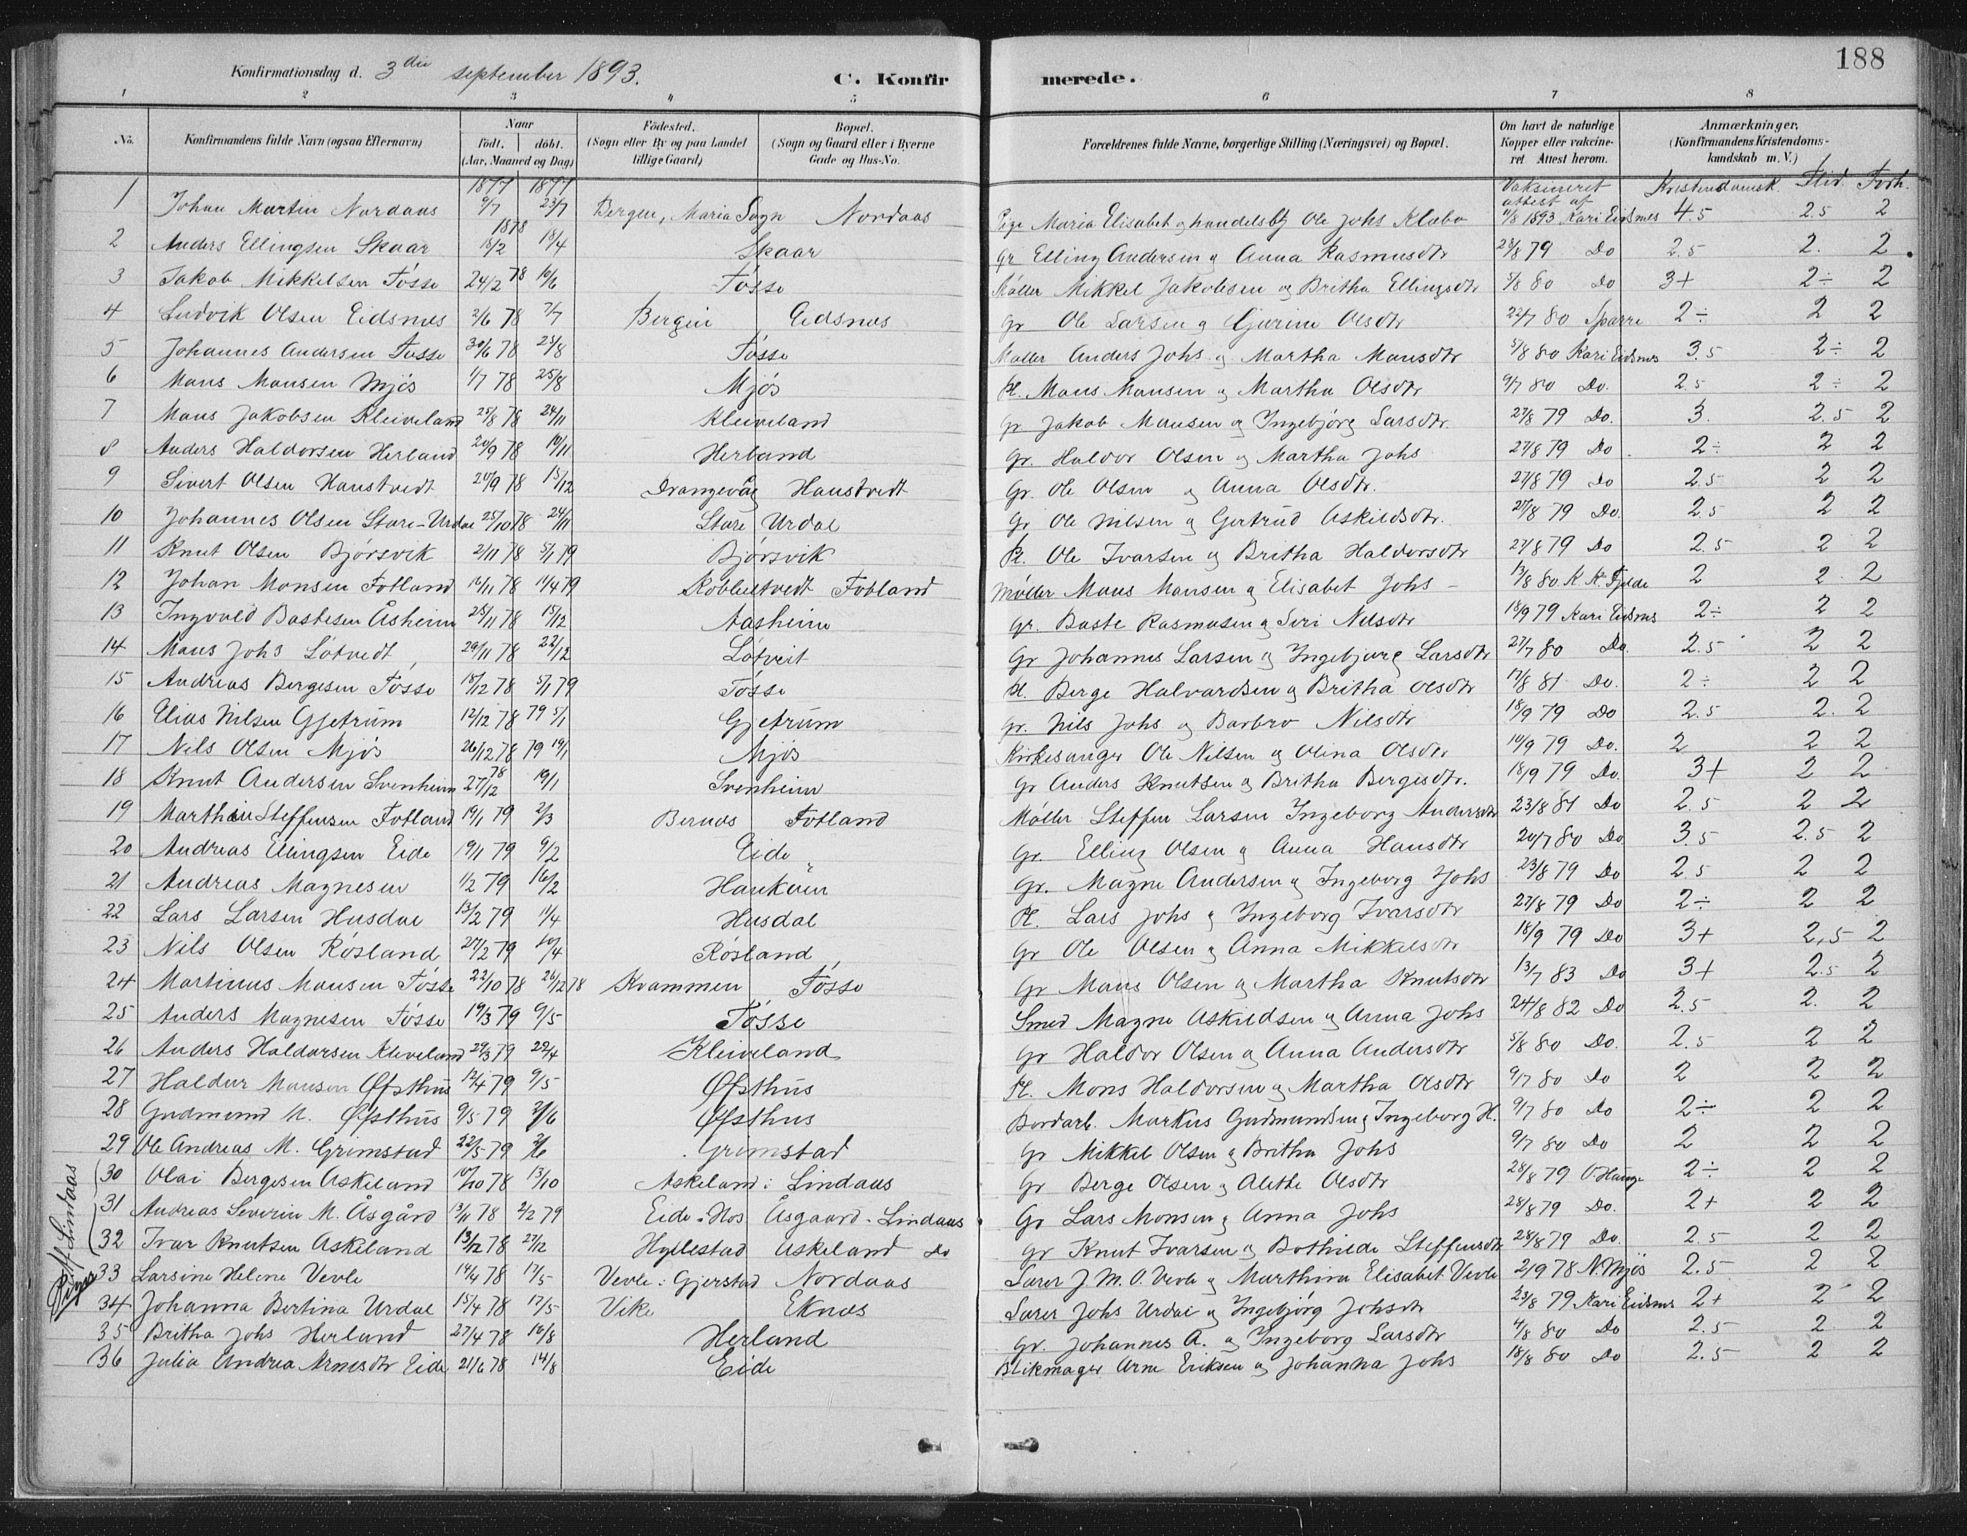 188
Konfirmationsdag d. 3die september 1893. C. Konfirmerede.
1 2 3 4 5 6 7 8
No. Konfirmandens fulde Navn (ogsaa Efternavn) Naar født. døbt. (Aar, Maaned og Dag) Fødested. (Sogn eller By og paa Landet tillige Gaard) Bopæl. (Sogn og Gaard eller i Byerne Gade og Hus-No. Forældrenes fulde Navne, borgerlige Stilling (Næringsvei) og Bopæl. Om havt de naturlige Kopper eller vaccineret Attest herom. Anmærkninger, (Konfirmandens Kristendomskundskab m. V.)
1877 1877 Vaksineret attest af Kristendomsk. Flid. Forh.
1 Johan Martin Nordaas 9/7 23/7 Bergen, Maria Sogn Nordaas Pige Maria Elisabet og handelsbtj Ole Johs Klæbo 11/8 1893 Kari Eidsnes 4.5 2.5 2
1878
2 Anders Ellingsen Skaar 18/2 18/4 Skaar Gr Elling Andersen og Anna Rasmusdtr 23/8 79 Do 2.5 2. 2.
3 Jakob Mikkelsen Fösse 24/2 78 10/6 Fösse Møller Mikkel Jakobsen og Britha Ellingsdtr 5/8 80 Do 3+ 2÷ 2
4 Ludvik Olsen Eidsnes 2/6 78 7/7 Bergen Eidsnes Gr Ole Larsen og Gjurine Olsdtr 22/7 80 Sparre 2÷ 2 2
5 Johannes Andersen Fosse 30/6 78 24/8 Fösse Møller Anders Johs og Martha Monsdtr 5/8 80 Kari Eidsnes 3.5 2÷ 2
6 Mons Monsen Mjös 1/7 78 25/8 Mjös Pl. Mons Monsen og Martha Olsdtr 9/7 80 Do. 2.5 2÷ 2
7 Mons Jakobsen Kleiveland 25/8 78 24/11 Kleiveland Gr Jakob Monsen og Ingebjörg Larsdtr. 27/8 79 Do. 3. 2.5 2
8 Anders Haldorsen Herland 20/9 78 10/11 Herland Gr. Haldor Olsen og Martha Johs 27/8 79 Do. 2÷ 2 2
9 Sivert Olsen Hanstvedt 20/9 78 15/12 Drangevåg Hanstvedt Gr. Ole Olsen og Anna Olsdtr. 27/8 79 Do 2.5 2 2
10 Johannes Olsen Store-Urdal 25/10 78 24/11 Store Urdal Gr Ole Nilsen og Gertrud Askildsdtr. 27/8 79 Do. 2.5 2 2
11 Knut Olsen Bjørsvik 2/11 78 5/1 79 Bjørsvik Pl. Ole Ivarsen og Britha Haldorsdtr 27/8 79 Do 2.5 2 2
12 Johan Monsen Fotland 14/11 78 14/4 79 Fotland Møller Mons Monsen og Elisabet Johs - 13/8 80 K. K. Fjelde 2 2. 2
13 Ingvald Bastesen Åsheim 25/11 78 15/12 Aasheim Gr. Baste Rasmusen og Siri Nilsdtr 18/9 79 Kari Eidsnes 2÷ 2 2
14 Mons Johs Lötvedt 29/11 78 22/12 Lötveit Gr Johannes Larsen og Ingebjørg Larsdtr 27/7 80 Do. 2.5 2 2
15 Andreas Bergesen Fösse 18/12 78 5/1 79 Fösse Pl. Berge Halvardsen og Britha Olsdtr 17/8 81 Do. 2÷ 2 2
16 Elias Nilsen Gjetrum 12/12 78 79 5/1 Gjetrum Gr. Nils Johs og Barbro Nilsdtr 18/9 79 Do 2.5 2. 2
17 Nils Olsen Mjös 26/12 78 79 19/1 Mjös Kirkesanger Ole Nilsen og Olina Olsdtr 10/9 79 Do. 2 2 2
18 Knut Andersen Svenheim 27/12 78 19/1 Svenheim Gr Anders Knutsen og Britha Bergesdtr. 18/9 79 Do. 3+ 2 2
19 Marthin Steffensen Fotland 19/1 79 2/3 Bernes Fotland Møller Steffen Larsen Ingeborg Andersdtr 23/8 81 Do 2.5 2 2
20 Andreas Elingsen Eide 19/1 79 9/2 Eide Gr. Elling Olsen og Anna Hansdtr 20/7 80 Do 3.5 2.5 2
21 Andreas Magnesen 1/2 79 16/2 Gr. Magne Andersen og Ingeborg Johs 23/8 79 Do 2.5 2 2
22 Lars Larsen Husdal 13/2 79 1/4 Husdal Pl. Lars Johs og Ingeborg Ivarsdtr 27/8 79 Do 2÷ 2 2
23 Nils Olsen Røsland 27/2 79 10/4 Røsland Gr Ole Olsen og Anna Mikkelsdtr 18/9 79 Do 3+ 2.5 2
24 Martinus Monsen Fösse 22/10 78 26/12 78 Kvammen Fösse Gr Mons Olsen og Martha Knutsdtr 13/7 83 Do 3+ 2.5 2
25 Anders Magnesen Fösse 19/3 79 9/5 Fösse Smed Magne Askildsen og Anna Johs 24/8 82 Do 2.5 2. 2
26 Anders Haldorsen Kleveland 29/3 79 22/4 Kleiveland Gr Haldor Olsen og Anna Andersdtr 5/8 80 Do. 2.5 2 2
27 Haldur Monsen Øfsthus 12/4 79 9/5 Øfsthus Pl. Mons Haldorsen og Martha Olsdtr 9/7 80 Do 2 2 2
28 Gudmund M. Øfsthus 9/5 79 2/6 Øfsthus Bordarb. Markus Gudmundsen og Ingeborg H. 9/7 80 Do 2÷ 2 2
29 Ole Andreas M. Grimstad 22/5 79 2/6 Grimstad Gr Mikkel Olsen og Britha Johs 9/7 80 Do 2 2 2
30 Olai Bergesen Askeland 10/10 78 13/10 Askeland i Lindaas Gr Berge Olsen og Alethe Olsdtr 28/8 79 O. Hauge 2÷ 2 2
Lindaas
31 Andreas Severin M. Åsgård 13/11 78 2/2 79 Eide i Hos Åsgaard - Lindaas Gr Lars Monsen og Anna Johs 28/8 79 Do. 2+ 2 2
32 Ivar Knutsen Askeland 13/12 78 27/12 Hyllestad Askeland Do Gr Knut Ivarsen og Bothilde Steffensdtr 28/8 79 Do. 2.5 2 2
Piger
33 Larsine Helene Vevle 14/4 78 17/5 Vevle i Gjerstad Nordaas Lærer J. M. O. Vevle og Marthina Elisabet Vevle 2/9 78 N. Mjös 2.5 2 2
34 Johanna Bertina Urdal 15/4 78 17/5 Vike Eknes Lærer Johs Urdal og Ingebjörg Johsdtr 23/8 79 Kari Eidsnes 2+ 2 2
35 Britha Johs Herland 27/4 78 10/8 Herland Gr. Johannes A. og Ingeborg Larsdtr 4/8 80 Do 2.5 2 2
36 Julia Andrea Arnesdtr Eide 21/6 78 14/8 Eide Blikmager Arne Eriksen og Johanna Johs 18/8 80 Do 2.5 2 2